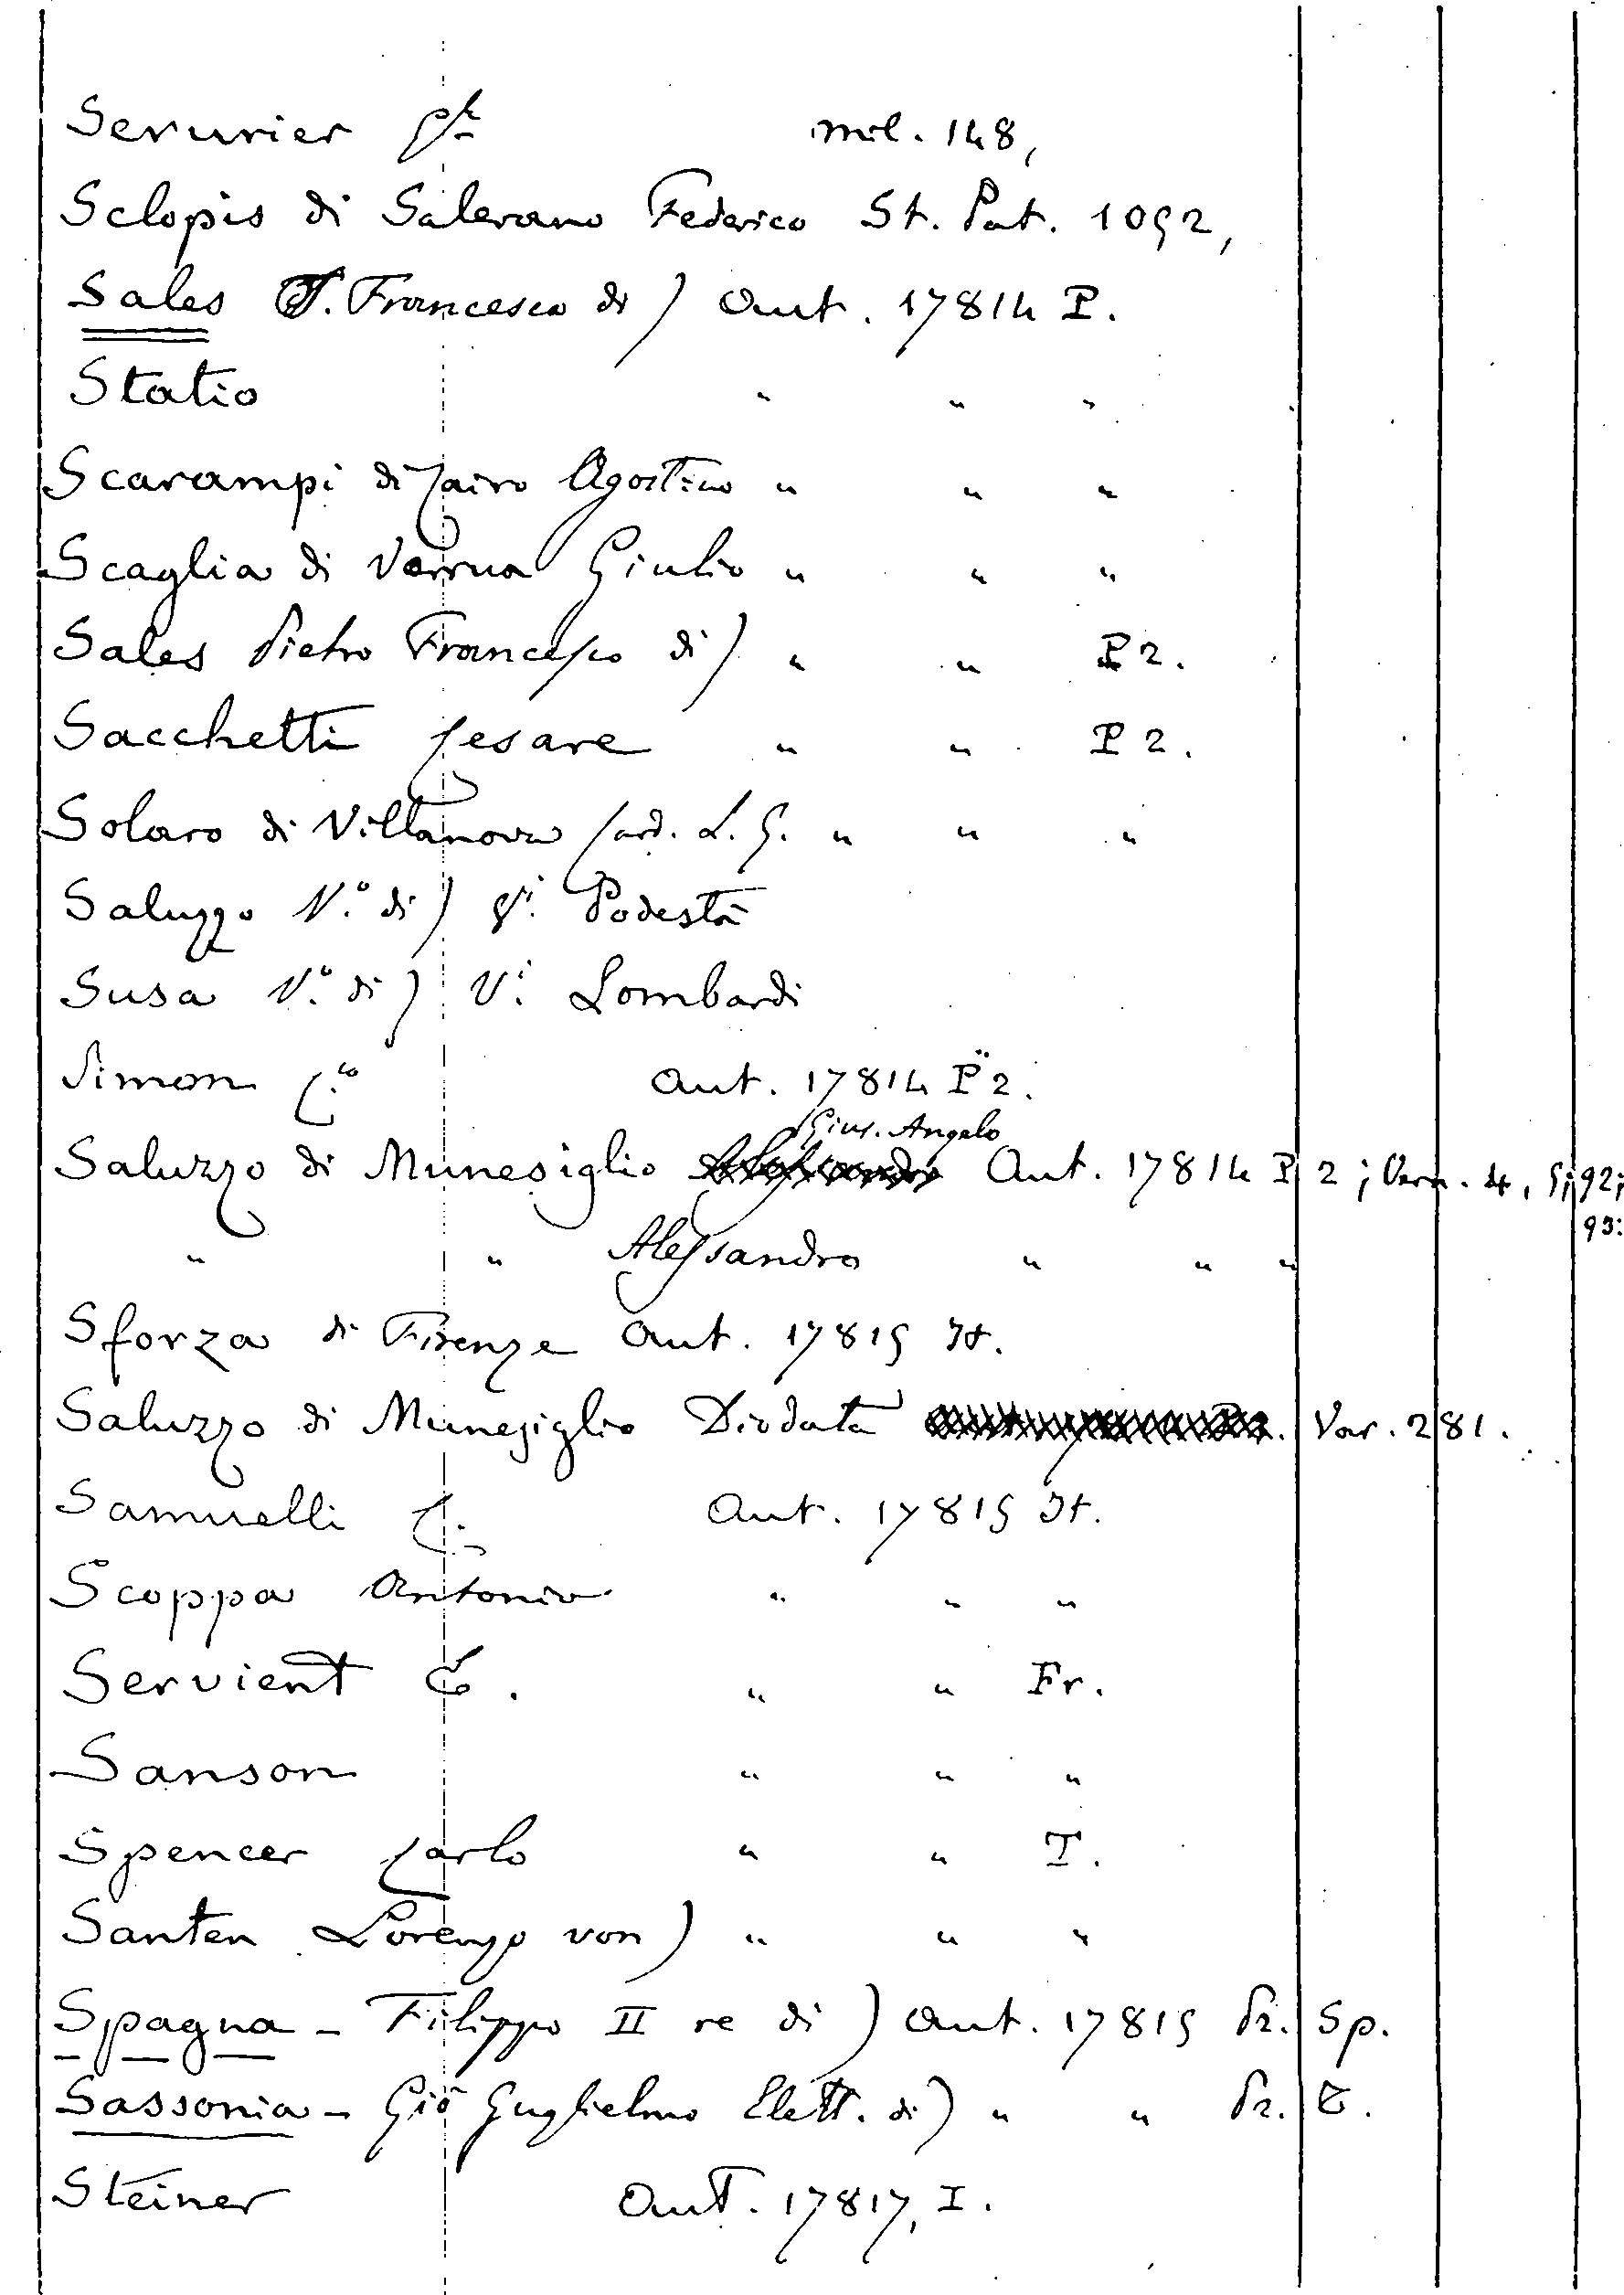 Serurier Gle mil. 148,
Sclopis di Salerano Federico St. Pat. 1052,
Sales S. Francesco di) Aut. 17814 P.
Statio " " "
Scarampi di Cairo Agostino " " "
Scaglia di Verrua Giulio " " "
Sales Pietro Francesco di) " " P 2.
Sacchetti Cesare " " P 2.
Solaro di Villanova Card. L. G. " " "
Saluzzo V.º di) Vi. Podestà
Susa V.º di) Vi. Lombardi
Simon C.io Aut. 17814 P 2.
Gius. Angelo
Saluzzo di Munesiglio Aut. 17814 P 2; Vern. 4, 51, 92;
93:
" " Alessandro " " "
Sforza di Firenze Aut. 17815 It.
Saluzzo di Munesiglio Diodata Var. 281.
Samuelli C. Aut. 17815 It.
Scoppa Antonio " " "
Servient E. " " Fr.
Sanson " " "
Spencer Carlo " " T.
Santen Lorenzo von) " " "
Spagna - Filippo II re di) Aut. 17815 Pr. Sp.
Sassonia - Giõ Guglielmo Elett. di) " " Pr. T.
Steiner Aut. 17817, I.